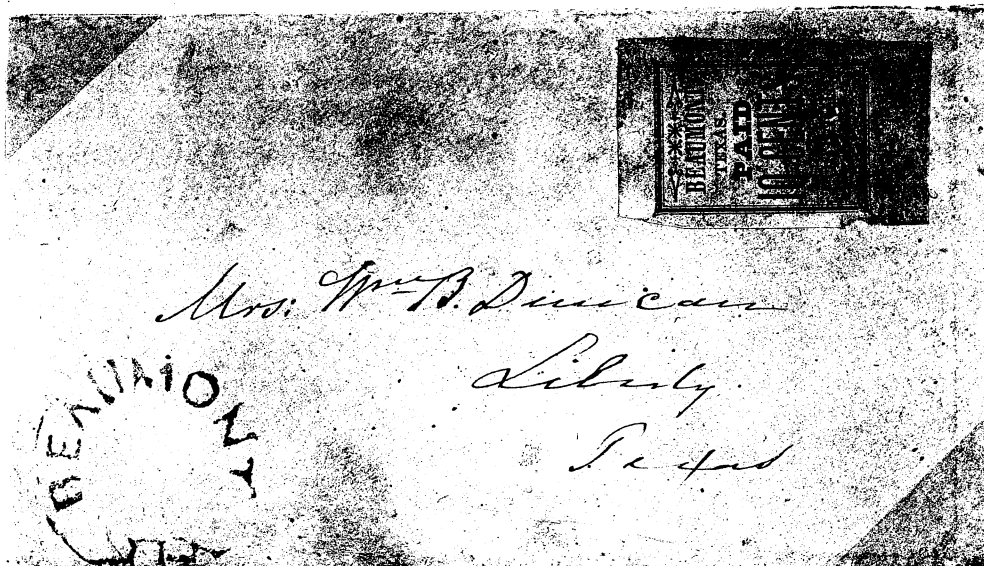 BEAUMONT
TEXAS.
PAID
10 CENTS
Mrs: Wm B. Duncan
Liberty
Texas
BEAUMONT